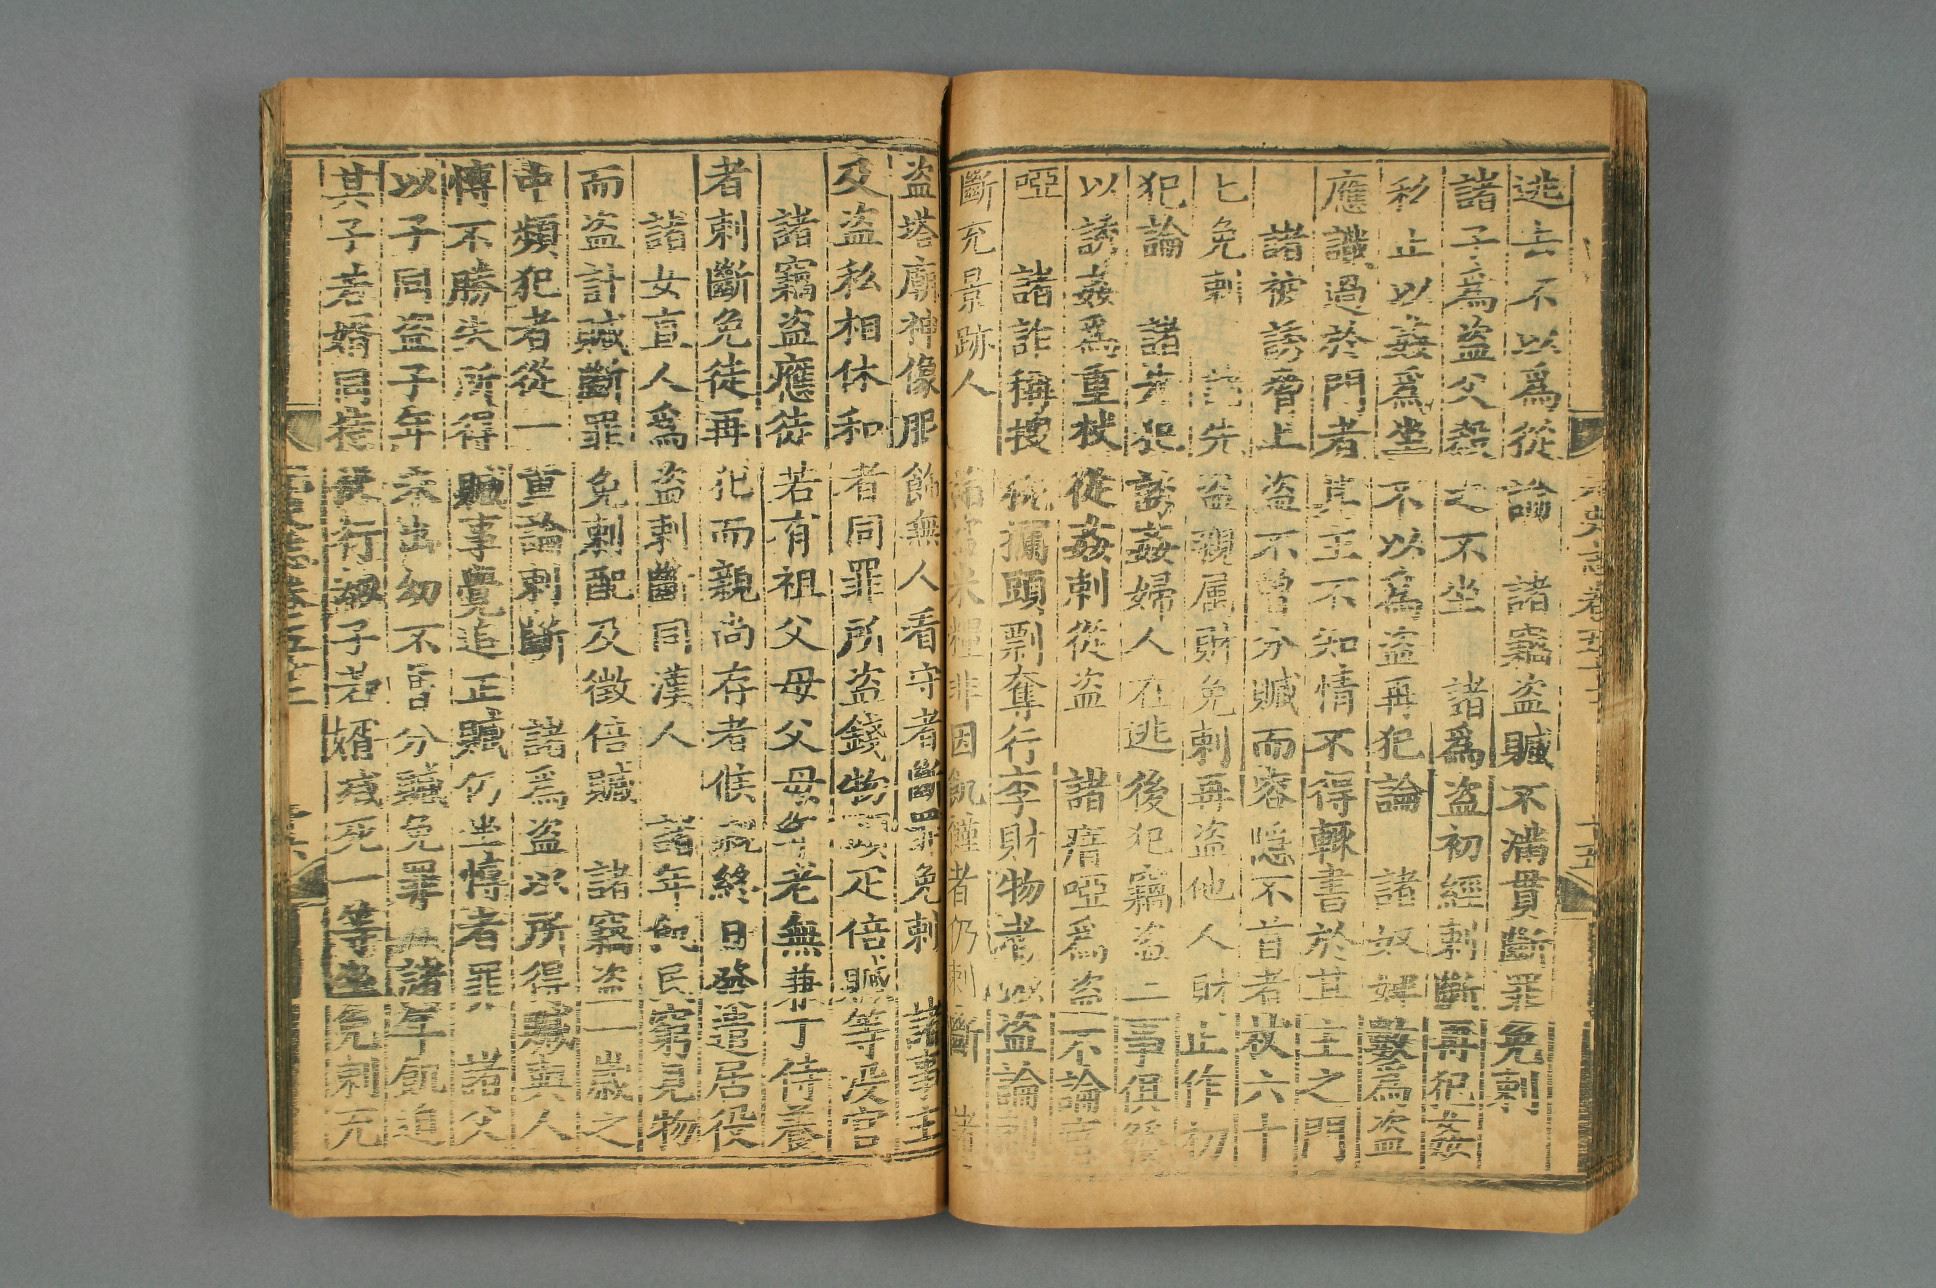 逃去不以爲從論　諸竊盜贓不滿貫斷罪免刺
諸子爲盜父殺之不坐　諸爲盜初經刺斷再犯姦
私止以姦爲坐不以爲盜再犯論　諸奴婢數爲盜
應識過於門者其主不知情不得輒書於其主之門
　諸被誘脅上盜不曾分贓而容隱不首者杖六十
七免刺　盜親属財免刺再盜他人財止作初
犯論　諸先犯誘姦婦人在逃後犯竊盜二事俱發
以誘姦爲重杖從姦刺從盜　諸瘖啞爲盜不論瘖
啞　諸詐稱搜稅攔頭剽奪行李財物者以盜論刺
斷充景跡人　米糧非因飢饉者仍刺斷　諸
盜塔廟神像服飾無人看守者斷罪免刺　諸事主
及盜私相休和者同罪所盜錢物頭疋倍贓等没官
　諸竊盜應徒若有祖父母父母年老無兼丁侍養
者刺斷免徒再犯而親尚存者候親終日發遣居役
　諸女直人爲盜刺斷同漢人　諸年飢民窮見物
而盜計贓斷罪免刺配及徵倍贓　諸竊盜一歲之
中頻犯者從一重論刺斷　諸爲盜以所得贓與人
博不勝失所得贓事覺追正贓仍坐博者罪　諸父
以子同盜子年未出幼不曾分贓免罪　諸年飢迫
其子若婿同持　行刼子若婿減死一等坐免刺充